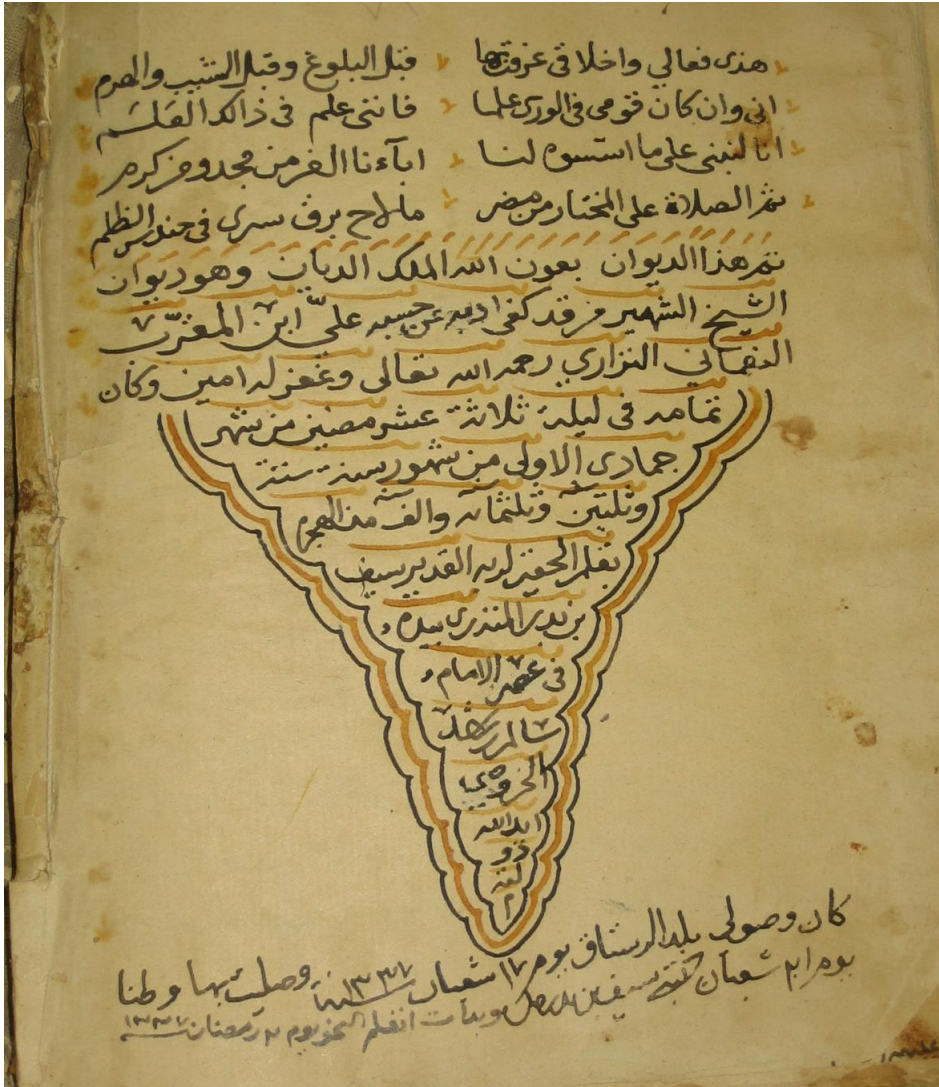 هذي فعالي واخلاقي عرفت بها قبل البلوغ وقبل الشيب والهرم
اني وان كان قومي في الورى علما فانني علم في ذالك العلم
انا لنبني على ما اسسوه لنا اباءنا الغر من مجد ومن كرم
ثم الصلاة على المختار من مضر ما لاح برق سرى في حندس الظلم
تم هذا الديوان بعون الله الملك الديان وهو ديوان
الشيخ الشهير من قد كفى ادبه عن حسبه علي ابن المقرب
النزاري رحمه الله تعالى وغفر له امين وكان
تمامه في ليلة ثلاثة عشر مضين من شهر
جمادى الاولى من شهور سنة ستة
وثلثين وثلثمائة والف من الهجرة
بقلم الحقير لربه القدير سيف
بن بدر المنذري بيده
في عصر الامام
سالم بن راشد
الخروصي
ايد الله
ذو
لته
م
كان وصولي بلد الرستاق يوم ١٧ شعبان سنة ١٣٣٧ وصليت بها وطنا
يوم شعبان كتبه سيف بن بدر وبدأت اتعلم النحو يوم رمضان سنة ١٣٣٧